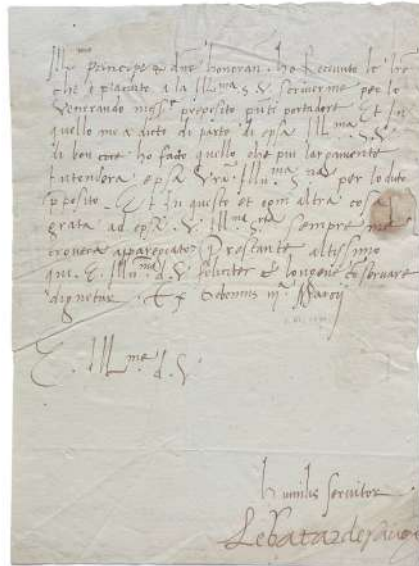 Ill.mo principe et dne honoran. ho Recevuto le lre
che e piaciuto a la Ill.ma S. V. scriverme per lo
Venerando messr preposito pnti portadore Et In
quello me a dicto di parte di epsa Ill.ma S. V.
di bon core ho facto quello che piu largamente
Intendera epsa Vra Illu.ma per lo dicto
pposito. Et In questo et ogni altra cosa
grata ad epsa V. Ill.ma S. sempre me
trovera appareciato Prestante altissimo
que E. Illu.ma d. V. feliciter et longeve conservare
dignetur. Ex
E. Ill.me d. V.
humilis servitor
Le batard de